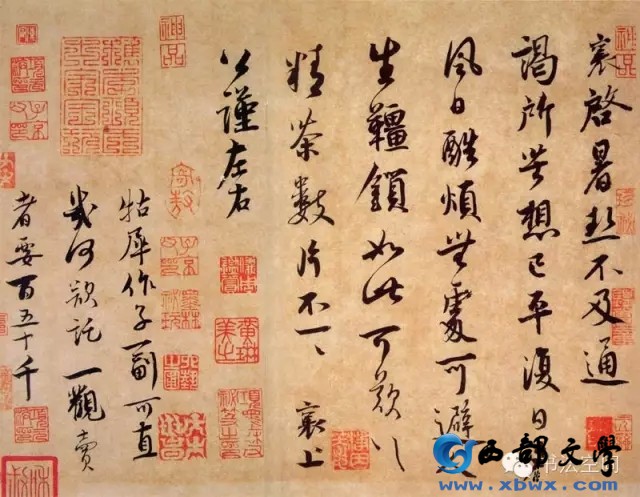 襄啓暑熱不及通
謁所苦想已平復日
風日酷煩無處可避人
生韁鎖如此可歎〻
精茶數片不一〻 襄上
公謹左右
牯犀作子一副可直
幾何欲託一觀賣
者要百五十千
神品
神品
西部文學
www.xbwx.com
书法空间